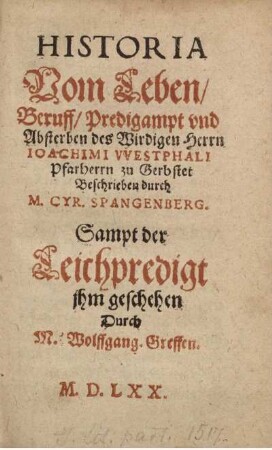 HISTORIA
Vom Leben/
Beruff/ Predigampt vnd
Absterben des Wirdigen Herrn
IOACHIMI VVESTPHALI
Pfarherrn zu Gerbstet
Beschrieben durch
M. CYR. SPANGENBERG.
Sampt der
Leichpredigt
jhm geschehen
Durch
M. Wolffgang. Greffen.
M. D. LXX.